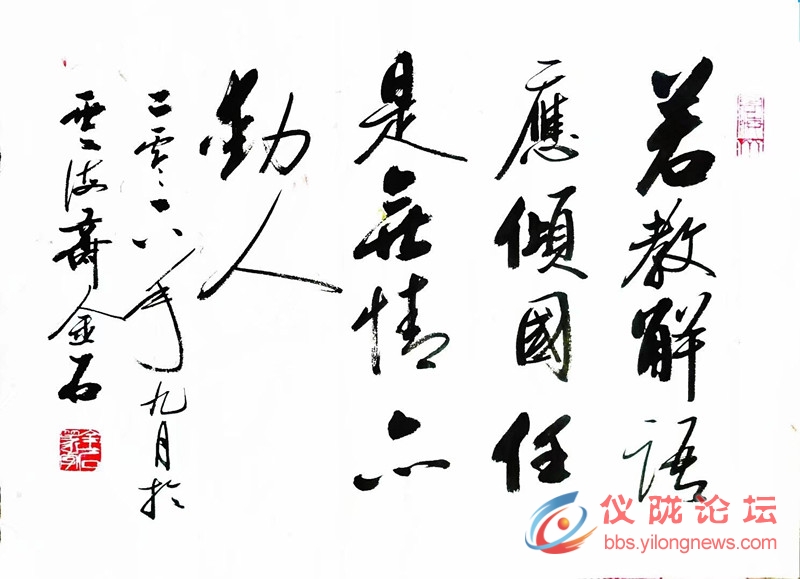 若教解語
應傾國任
是無情亦
動人
二零一六年九月於
雲海齋金石
仪陇论坛
bbs.yilongnews.com